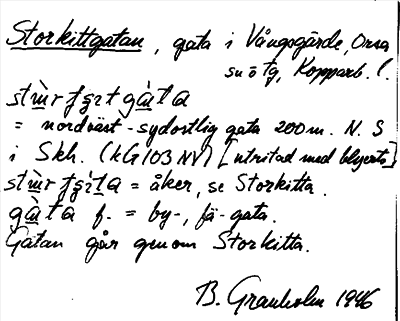 Storkittgatan, gata i Vångsgärde, Orsa
sn o tg, Kopparb. l.
= nordväst-sydostlig gata 200 m. N. S
i Skh. (kG 103 NV) [utritad med blyerts]
= åker, se Storkitta.
f. = by-, fä-gata.
Gatan går genom Storkitta.
B. Granholm 1946